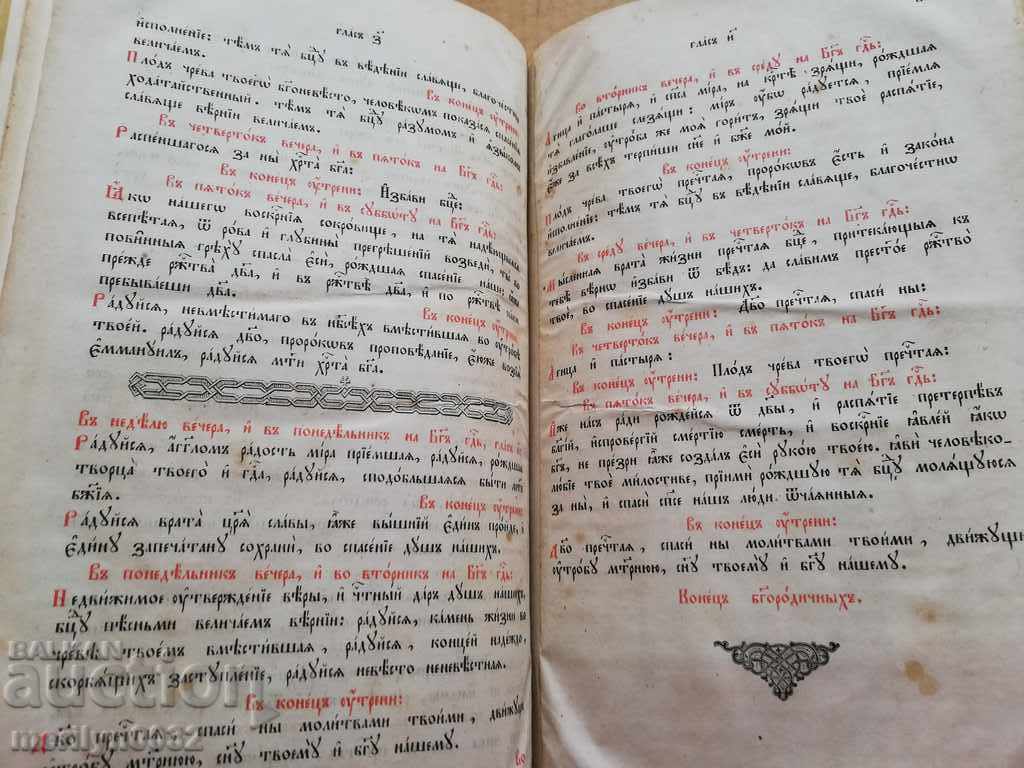 гла́съ з҃
и҆сполне́нїе: тѣ́мъ тѧ̀ бц҃ꙋ въ вѣ́дѣнїи сла́вѧще, благоче́стнѡ
велича́емъ.
Въ коне́цъ оу҆́трени
Пло́дъ чре́ва твоегѡ̀ бг҃оневѣ́сто, человѣ́кѡмъ показа́сѧ спасе́нїѧ
хода́тайственный. тѣ́мъ тѧ̀ бц҃ꙋ ра́зꙋмомъ и҆ ѧ҆зы́комъ
сла́вѧще вѣ́рнїи велича́емъ.
Въ четверто́къ ве́чера, и҆ въ пѧто́къ на Бг҃ъ гдⷭ҇ь:
Распе́ншагосѧ за ны̀ хрⷭ҇та̀ бг҃а.
Въ коне́цъ оу҆́трени: И҆зба́ви бц҃е:
Въ пѧто́къ ве́чера, и҆ въ сꙋббѡ́тꙋ на Бг҃ъ гдⷭ҇ь:
Ꙗ҆́кѡ на́шегѡ воскрⷭ҇нїѧ сокро́вище, на тѧ̀ надѣ́ющыѧсѧ
всепѣ́таѧ, ѿ ро́ва и҆ глꙋбины̀ прегрѣше́нїй возведѝ, ты́ бо
пови́нныѧ грѣхꙋ̀ спасла̀ є҆сѝ, ро́ждшаѧ спасе́нїе на́ше:
пре́жде ржⷭ҇тва̀ дв҃а, и҆ въ ржⷭ҇твѣ̀ дв҃а, и҆ по ржⷭ҇твѣ̀
пребыва́еши дв҃а.
Въ коне́цъ оу҆́трени:
Ра́дꙋйсѧ, невмѣсти́маго въ нб҃сѣ́хъ вмѣсти́вшаѧ во оу҆тро́бѣ
твое́й. ра́дꙋйсѧ дв҃о, прⷪ҇ро́кѡвъ проповѣ́данїе, є҆́юже возсїѧ̀
Є҆мманꙋ́илъ, ра́дꙋйсѧ мт҃и хрⷭ҇та̀ бг҃а.
Въ недѣ́лю ве́чера, и҆ въ понедѣ́льникъ на Бг҃ъ гдⷭ҇ь, гла́съ и҃
Ра́дꙋйсѧ, а҆́гг҃ломъ ра́дость мі́ра прїе́мшаѧ, ра́дꙋйсѧ, ро́ждшаѧ
творца̀ твоего̀ и҆ гдⷭ҇а, ра́дꙋйсѧ, сподо́бльшаѧсѧ бы́ти мт҃и
бж҃їѧ.
Въ коне́цъ оу҆́трени:
Ра́дꙋйсѧ врата̀ цр҃ѧ̀ сла́вы, ꙗ҆̀же вы́шнїй є҆ди́нъ про́йде, и҆
є҆ди́нꙋ запеча́танꙋ сохранѝ, во спасе́нїе дꙋ́шъ на́шихъ.
Въ понедѣ́льникъ ве́чера, и҆ во вто́рникъ на Бг҃ъ гдⷭ҇ь:
Недви́жимое оу҆твержде́нїе вѣ́ры, и҆ чⷭ҇тны́й да́ръ дꙋ́шъ на́шихъ,
бц҃ꙋ пѣ́сньми велича́емъ вѣ́рнїи: ра́дꙋйсѧ, ка́мень жи́зни во
чре́вѣ твое́мъ вмѣсти́вшаѧ, ра́дꙋйсѧ, концє́й наде́ждо,
скорбѧ́щихъ застꙋпле́нїе, ра́дꙋйсѧ невѣ́сто неневѣ́стнаѧ.
Въ коне́цъ оу҆́трени:
Дв҃о пречⷭ҇таѧ, спасѝ ны̀ моли́твами твои́ми, дви́жꙋщи
оу҆тро́бꙋ мт҃рнюю, сн҃ꙋ твоемꙋ̀ и҆ бг҃ꙋ на́шемꙋ.
гла́съ и҃
Во вто́рникъ ве́чера, и҆ въ сре́дꙋ на Бг҃ъ гдⷭ҇ь:
А҆́гнца и҆ па́стырѧ, и҆ сп҃са мі́ра, на крⷭ҇тѣ̀ зрѧ́щи, ро́ждшаѧ
тѧ̀ глаго́лаше слезѧ́щи: мі́ръ оу҆́бѡ ра́дꙋетсѧ, прїе́млѧ
и҆збавле́нїе, оу҆тро́ба же моѧ̀ гори́тъ, зрѧ́щи твоѐ распѧ́тїе,
є҆́же за всѣ́хъ терпи́ши сн҃е и҆ бж҃е мо́й.
Въ коне́цъ оу҆́трени:
Пло́дъ чре́ва твоегѡ̀ пречⷭ҇таѧ, прⷪ҇ро́кѡвъ є҆́сть и҆ зако́на
и҆сполне́нїе: тѣ́мъ тѧ̀ бц҃ꙋ въ вѣ́дѣнїи сла́вѧще, благоче́стнѡ
велича́емъ.
Въ сре́дꙋ ве́чера, и҆ въ четверто́къ на Бг҃ъ гдⷭ҇ь:
Мы́сленнаѧ врата̀ жи́зни пречⷭ҇таѧ бц҃е, притека́ющыѧ къ
тебѣ̀ вѣ́рнѡ и҆зба́ви ѿ бѣ́дъ: да сла́вимъ престо́е ржⷭ҇тво̀
твоѐ, во спасе́нїе дꙋ́шъ на́шихъ.
Въ коне́цъ оу҆́трени: Дв҃о пречⷭ҇таѧ, спасѝ ны̀:
Въ четверто́къ ве́чера, и҆ въ пѧто́къ на Бг҃ъ гдⷭ҇ь:
А҆́гнца и҆ па́стырѧ:
Въ коне́цъ оу҆́трени: Пло́дъ чре́ва твоегѡ̀ пречⷭ҇таѧ:
Въ пѧто́къ ве́чера, и҆ въ сꙋббѡ́тꙋ на Бг҃ъ гдⷭ҇ь:
И҆́же на́съ ра́ди рожде́йсѧ ѿ дв҃ы, и҆ распѧ́тїе претерпѣ́въ
благі́й, и҆спрове́ргїй сме́ртїю сме́рть, и҆ воскрⷭ҇нїе ꙗ҆вле́й ꙗ҆́кѡ
бг҃ъ, не пре́зри ꙗ҆̀же созда́лъ є҆сѝ рꙋко́ю твое́ю. ꙗ҆вѝ человѣко-
лю́бїе твоѐ млⷭ҇тиве, прїимѝ ро́ждшꙋю тѧ̀ бц҃ꙋ молѧ́щꙋюсѧ
за ны̀, и҆ спасѝ сп҃се на́шъ лю́ди ѿча́ѧнныѧ.
Въ коне́цъ оу҆́трени:
Дв҃о пречⷭ҇таѧ, спасѝ ны̀ моли́твами твои́ми, дви́жꙋщи
оу҆тро́бꙋ мт҃рнюю, сн҃ꙋ твоемꙋ̀ и҆ бг҃ꙋ на́шемꙋ.
Коне́цъ бг҃оро́дичныхъ.
BALKAN
auction
merilyn0082